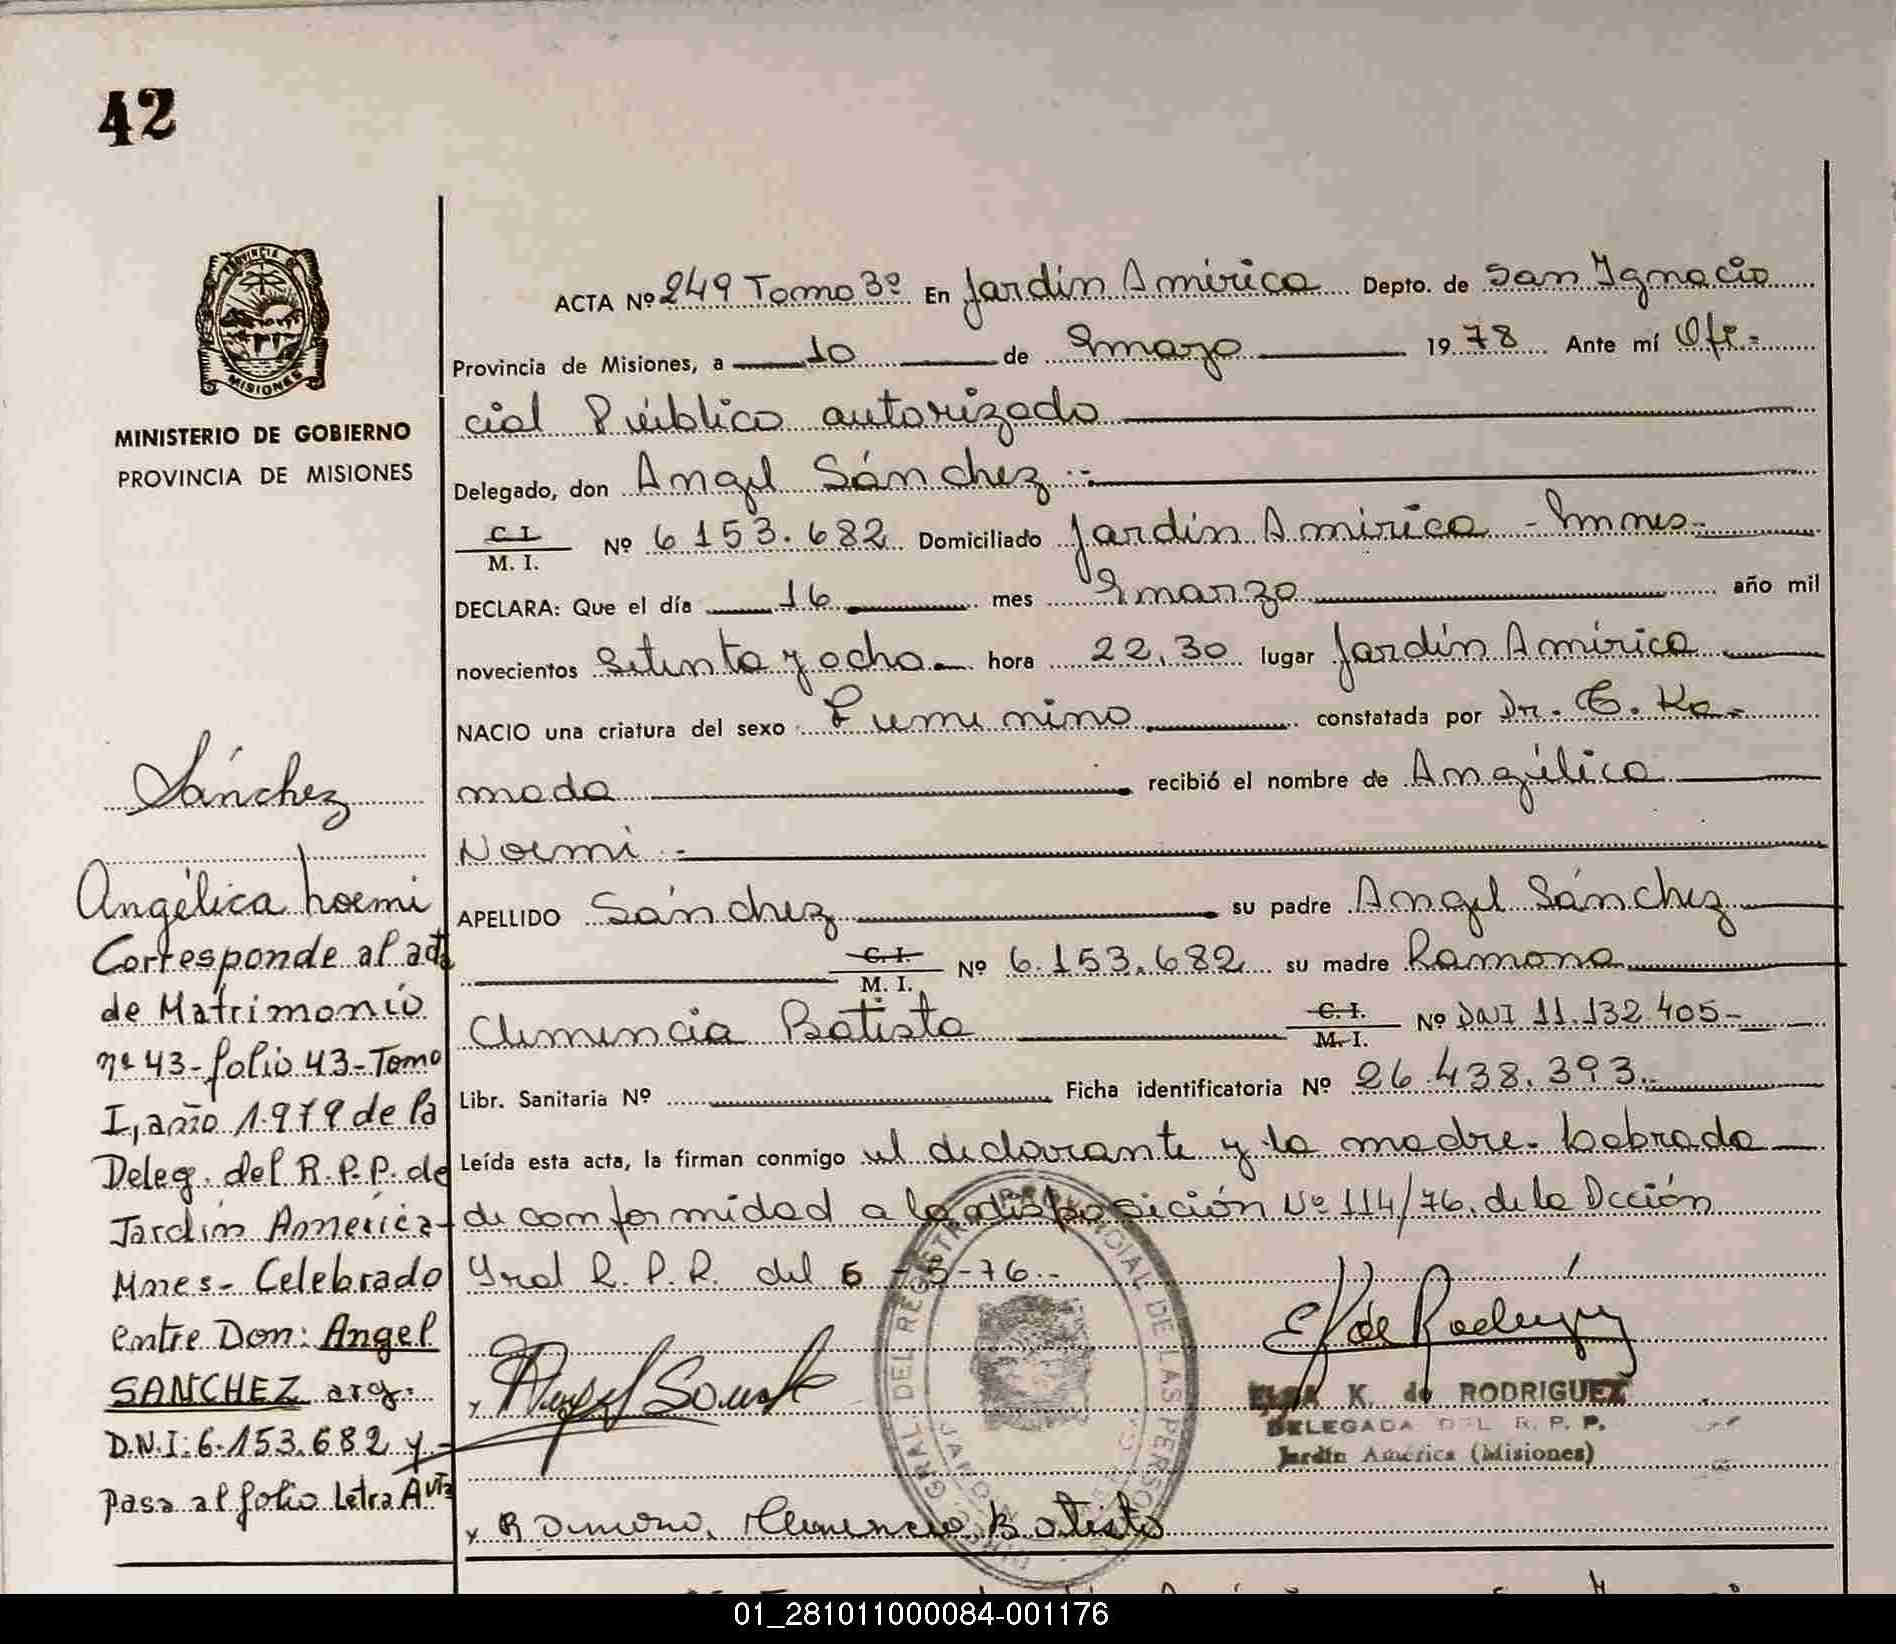 42
PROVINCIA DE
MISIONES
MINISTERIO DE GOBIERNO
PROVINCIA DE MISIONES
ACTA Nº 249 Tomo 3º En Jardín América Depto. de San Ignacio
Provincia de Misiones, a 10 de mayo 1978 Ante mí Ofi-
cial Público autorizado
Delegado, don Angel Sánchez.-
C. I.
M. I. Nº 6.153.682 Domiciliado Jardín América - Mnes-
DECLARA: Que el día 16 mes marzo año mil
novecientos setenta y ocho hora 22,30 lugar Jardín América
NACIO una criatura del sexo Femenino constatada por Dr. E. Ka-
mada recibió el nombre de Angélica
Noemi.-
APELLIDO Sánchez su padre Angel Sánchez
C. I.
M. I. Nº 6.153.682 su madre Ramona
Clemencia Batista C. I.
M. I. Nº DNI 11.132.405-
Libr. Sanitaria Nº Ficha identificatoria Nº 26.438.393.-
Leída esta acta, la firman conmigo el declarante y la madre. Labrada
de conformidad a la disposición Nº 114/76. de la Dcción
Gral R. P. P. del 5-3-76.-
Sánchez
Angélica Noemi
Corresponde al acta
de Matrimonio
nº 43-folio 43-Tomo
I, año 1.979 de la
Deleg. del R.P.P. de
Jardín América-
Mnes- Celebrado
entre Don: Angel
SANCHEZ arg.
D.N.I. 6.153.682 y-
Pasa al folio Letra A Vta
E K de Rodriguez
ELSA K. de RODRIGUEZ
DELEGADA DEL R. P. P.
Jardín América (Misiones)
y Angel Sanchez
y Ramona Clemencia Batista
DEL REGISTRO PROVINCIAL DE LAS PERSONAS
01_281011000084-001176